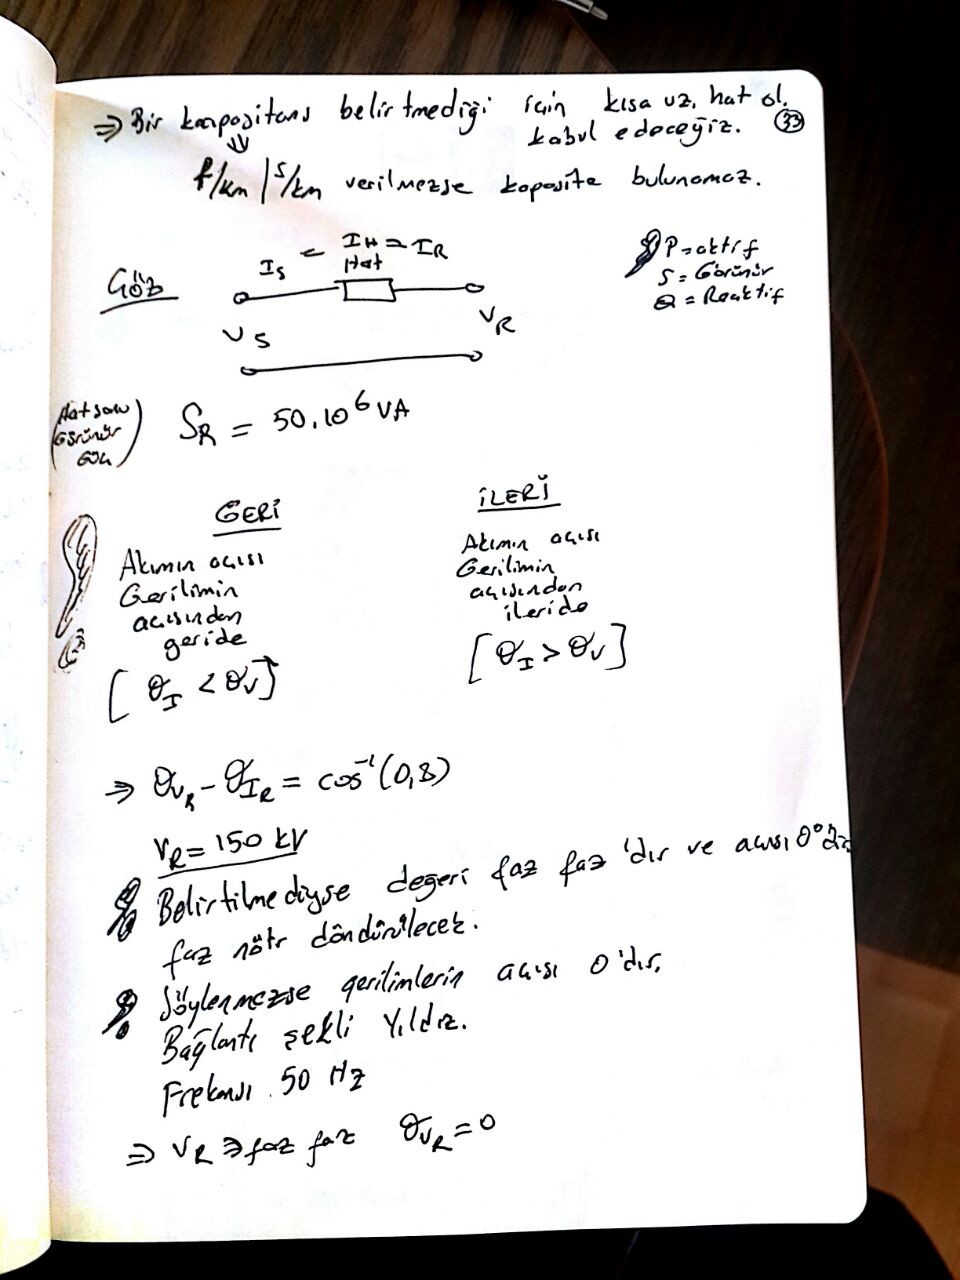 ⇒ Bir kapasitans belirtmediği için kısa uz. hat ol.
kabul edeceğiz. 33
⇓
f/km | s/km verilmezse kapasite bulunamaz.
Göz
Is = IH = IR
Hat
VS
VR
P = aktif
S = Görünür
Q = Reaktif
(Hat sonu
Görünür
Güç)
SR = 50.10^6 VA
GERİ
Akımın açısı
Gerilimin
açısından
geride
[θI < θV]
İLERİ
Akımın açısı
Gerilimin
açısından
ileride
[θI > θV]
⇒ θVR - θIR = cos^-1(0,8)
VR = 150 kV
Belirtilmediyse değeri faz faz'dır ve açısı 0°dır
faz nötr döndürülecek.
Söylenmezse gerilimlerin açısı 0'dır.
Bağlantı şekli Yıldız.
Frekansı 50 Hz
⇒ VR ⇒ faz faz θVR = 0